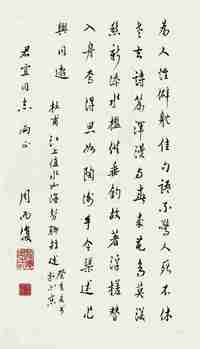 為人性僻躭佳句語不驚人死不休
老去詩篇渾漫與春來花鳥莫深
愁新添水檻供垂釣故著浮槎替
入舟焉得思如陶謝手令渠述作
與同遊
杜甫江上值水如海勢聊短述
癸亥
於北京
君宜同志兩正
周而復